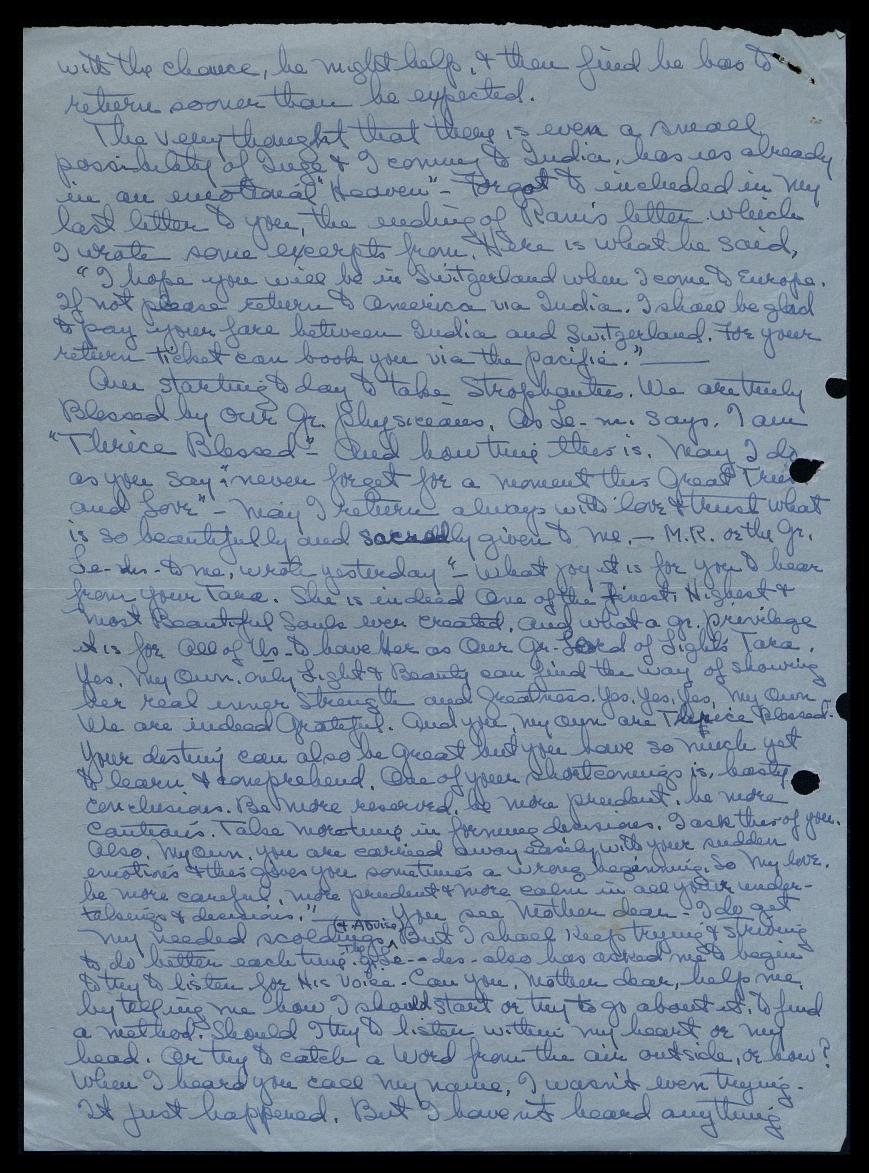 with the chance, he might help, & then find he has to
return sooner than he expected.
The very thought that there is even a small
possibility of Inge & I coming to India, has us already
in an emotional "Heaven" - Forgot to included in my
last letter to you, the ending of Rani's letter which
I wrote some excerpts from. Here is what he said,
"I hope you will be in Switzerland when I come to Europe.
If not please return to America via India. I shall be glad
to pay your fare between India and Switzerland. For your
return ticket can book you via the pacific."
Am starting today to take Strophantus. We are truly
Blessed by Our Gr. Physicians. As Le-m. says, I am
"Thrice Blessed" - And how true this is. May I do
as you say "never forget for a moment this Great Trust
and Love" - May I return always with love & trust what
is so beautifully and sacredly given to me. - M.R. or the Gr.
to me, wrote yesterday "- What joy it is for you to hear
from your Tara. She is indeed One of the Finest, Highest &
most Beautiful Souls ever created, and what a gr. privilege
it is for all of Us - to have Her as Our Gr. Lord of Light's Tara.
Yes, My Own, only Light & Beauty can find the way of showing
her real inner Strength and Greatness. Yes, Yes, Yes, My Own
We are indeed Grateful. And you, my own are Thrice Blessed.
Your destiny can also be Great but you have so much yet
to learn & comprehend. One of your shortcomings is, hasty
conclusions. Be more reserved, be more prudent, be more
cautious. Take more time in forming decisions. I ask this of you.
Also, My Own, you are carried away easily with your sudden
emotions & this gives you sometimes a wrong beginning. So My love,
be more careful, more prudent & more calm in all your under-
takings & decisions." You see Mother dear - I do get
my needed scoldings (& Advice) But I shall keep trying & striving
to do better each time. also has asked me to begin
to try to listen for His Voice - Can you, Mother dear, help me,
by telling me how I should start or try to go about it, to find
a method. Should I try to listen within my heart or my
head. Or try to catch a Word from the air outside, or how?
When I heard you call my name, I wasn't even trying.
It just happened. But I haven't heard anything